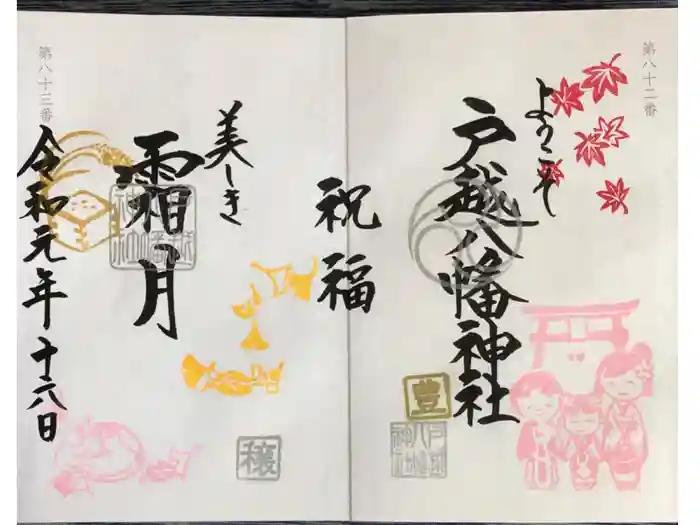 第八十二番
ようこそ
戸越八幡神社
豊
戸越
八幡
神社
祝福
美しき
霜月
戸越
八幡
神社
穣
令和元年十六日
第八十三番